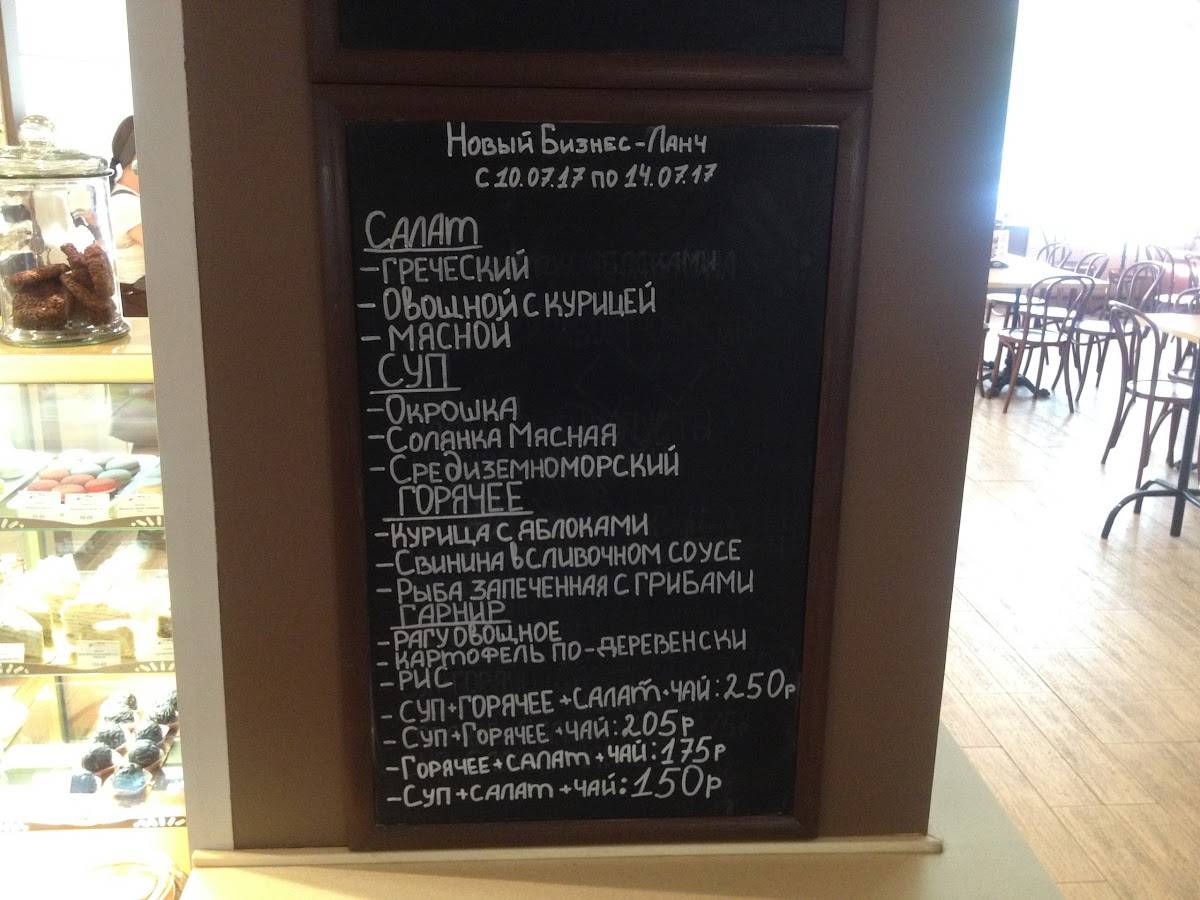 Новый Бизнес-Ланч
с 10.07.17 по 14.07.17
Салат
- Греческий
- Овощной с курицей
- Мясной
Суп
- Окрошка
- Солянка Мясная
- Средиземноморский
Горячее
- Курица с яблоками
- Свинина в сливочном соусе
- Рыба запеченная с грибами
Гарнир
- Рагу овощное
- Картофель по-деревенски
- Рис
- Суп+Горячее+салат+чай: 250р
- Суп+Горячее+чай: 205р
- Горячее+салат+чай: 175р
- Суп+салат+чай: 150р